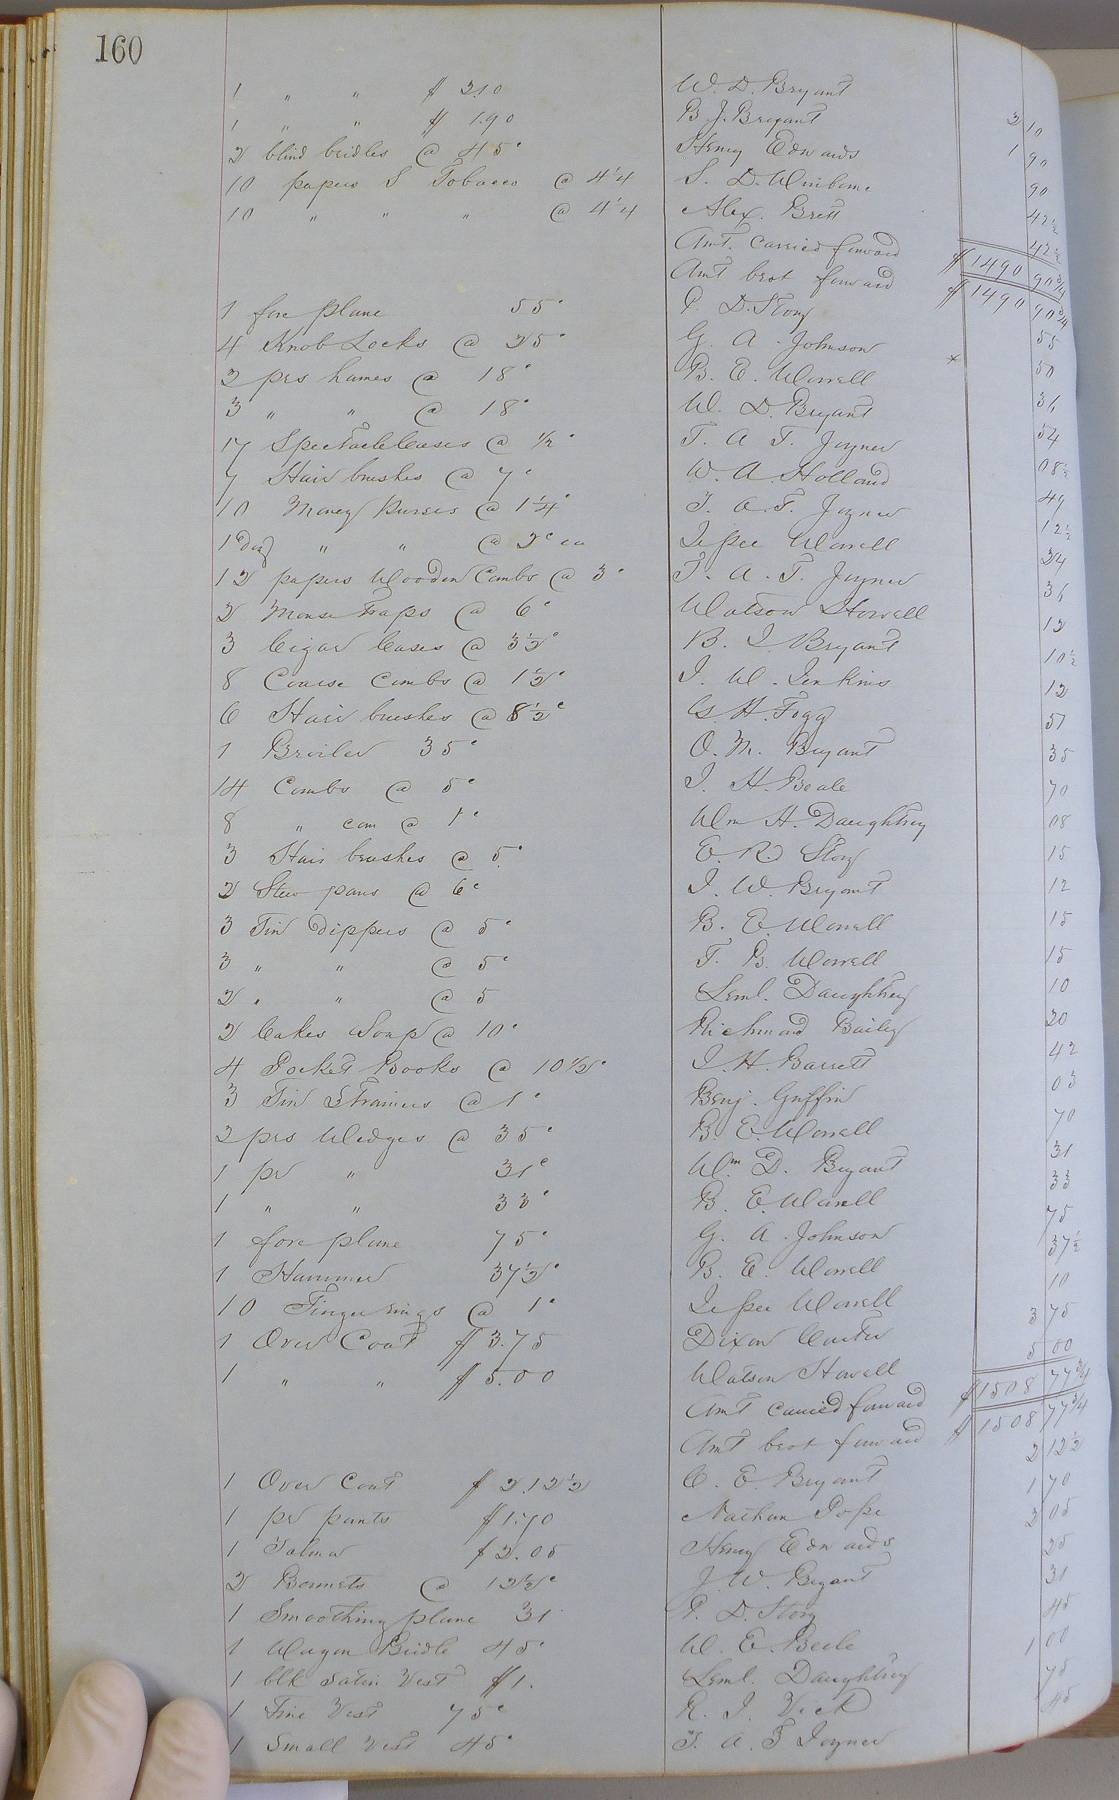 160
1 " " $ 2.10 W. D. Bryant 2 10
1 " " $ 1.90 B. J. Bryant 1 90
2 blind bridles @ 45c Henry Edwards 90
10 papers S Tobacco @ 4¼ S. D. Winborne 42½
10 " " " @ 4¼ Alex. Brett 42½
Amt. carried forward $1490 90¾
Amt brot forward $1490 90¾
1 fore plane 55c P. D. Story 55
4 Knob Locks @ 25c G. A. Johnson * 50
2 prs hames @ 18c B. E. Worrell 36
3 " " @ 18c W. D. Bryant 54
17 Spectacle Cases @ ½c T. A. T. Joyner 08½
7 Hair brushes @ 7c W. A. Holland 49
10 Money Purses @ 1¼c T. A. T. Joyner 12½
1 Doz " " @ 2c ea Jesse Worrell 24
12 papers Wooden Combs @ 3c T. A. T. Joyner 36
2 Mouse Traps @ 6c Watson Howell 12
3 Cigar Cases @ 3½c B. J. Bryant 10½
8 Coarse Combs @ 1½c J. W. Jenkins 12
6 Hair brushes @ 8½c G. H. Fogg 51
1 Broiler 35c O. M. Bryant 35
14 Combs @ 5c J. H. Beale 70
8 " com @ 1c Wm H. Daughtrey 08
3 Hair brushes @ 5c E. R. Story 15
2 Stew pans @ 6c J. W. Bryant 12
3 Tin Dippers @ 5c B. E. Worrell 15
3 " " @ 5c T. B. Worrell 15
2 " " @ 5 Leml. Daughtrey 10
2 Cakes Soap @ 10c Richmond Bailey 20
4 Pocket Books @ 10½c J. H. Barrett 42
3 Tin Strainers @ 1c Benj. Griffin 03
2 prs Wedges @ 35c B. E. Worrell 70
1 pr " 31c Wm D. Bryant 31
1 " " 33c B. E. Worrell 33
1 fore plane 75c G. A. Johnson 75
1 Hammer 37½c B. E. Worrell 37½
10 Finger rings @ 1c Jesse Worrell 10
1 Over Coat $ 3.75 Dixon Carter 3 75
1 " " $ 5.00 Watson Howell 5 00
Amt carried forward $1508 77¾
Amt brot forward $1508 77¾
1 Over Coat $ 2.12½ C. E. Bryant 2 12½
1 pr pants $1.70 Nathan Pope 1 70
1 Talma $ 2.05 Henry Edwards 2 05
2 Bonnets @ 12½c J. W. Bryant 25
1 Smoothing plane 31 P. D. Story 31
1 Wagon Bridle 45c W. E. Beale 45
1 blk Satin Vest $1. Leml. Daughtrey 1 00
1 Fine Vest 75c R. J. Vick 75
1 Small Vest 45c T. A. T Joyner 45